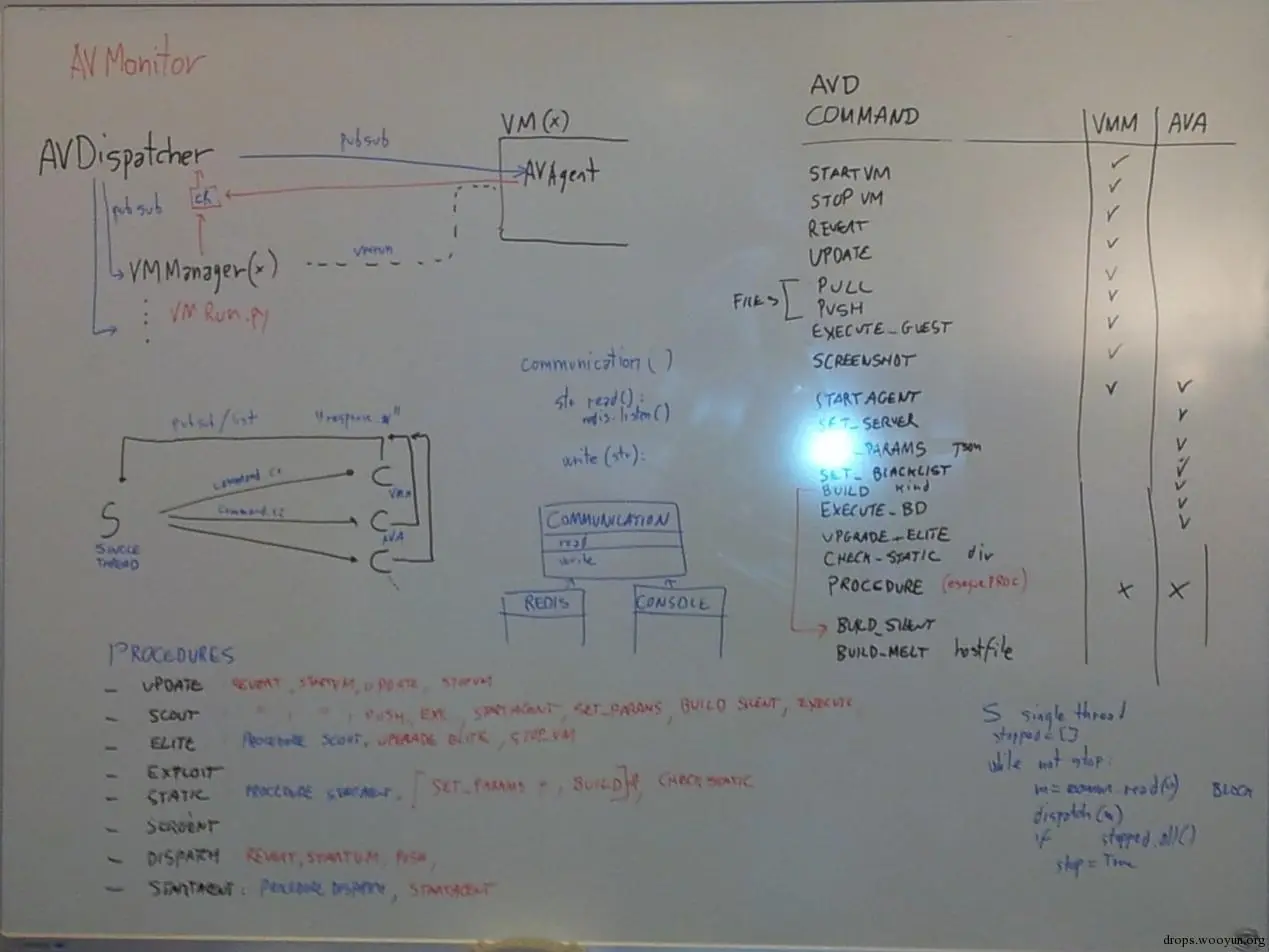 AV Monitor
AVDispatcher
pubsub
VM(x)
AVAgent
pubsub
ch
VMManager(x)
vmrun
VM Run.py
pubsub/list
"response_
command c1
command c2
C
VMM
C
AVA
C
S
SINGLE
THREAD
communication( )
str read():
redis.listen()
write(str):
COMMUNICATION
read
write
REDIS
CONSOLE
AVD
COMMAND
VMM
AVA
START VM
STOP VM
REVERT
UPDATE
FILES
PULL
PUSH
EXECUTE_GUEST
SCREENSHOT
START AGENT
SET_SERVER
_PARAMS Json
SET_BLACKLIST
BUILD kind
EXECUTE_BD
UPGRADE_ELITE
CHECK_STATIC dir
PROCEDURE
BUILD_SILENT
BUILD_MELT hostfile
PROCEDURES
- UPDATE REVERT, STARTVM, UPDATE, STOPVM
- SCOUT " , " , PUSH, EXE, STARTAGENT, SET_PARAMS, BUILD SILENT, EXECUTE
- ELITE PROCEDURE SCOUT, UPGRADE ELITE, STOP_VM
- EXPLOIT
- STATIC PROCEDURE STARTAGENT, [SET_PARAMS , BUILD] CHECK STATIC
-
- DISPATCH REVERT, STARTVM, PUSH,
- STARTAGENT: PROCEDURE DISPATCH, STARTAGENT
S single thread
stopped = []
while not stop:
m = comm.read() BLOCK
dispatch(m)
if stopped.all()
stop = True
drops.wooyun.org